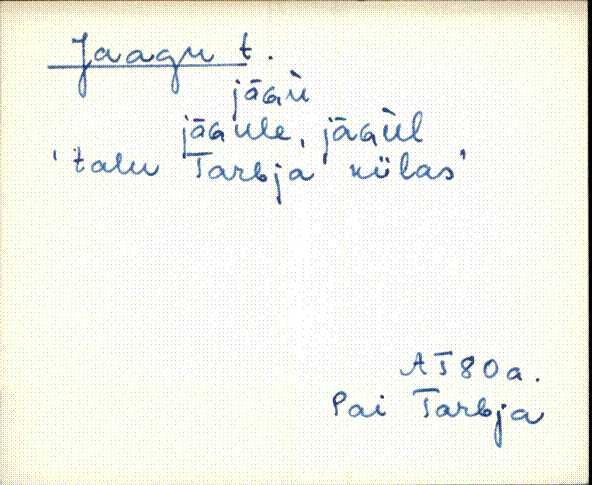 Jaagu t.
jāGù
jāGule, jāGùl
'talu Tarbja külas'
AT80a.
Pai Tarbja